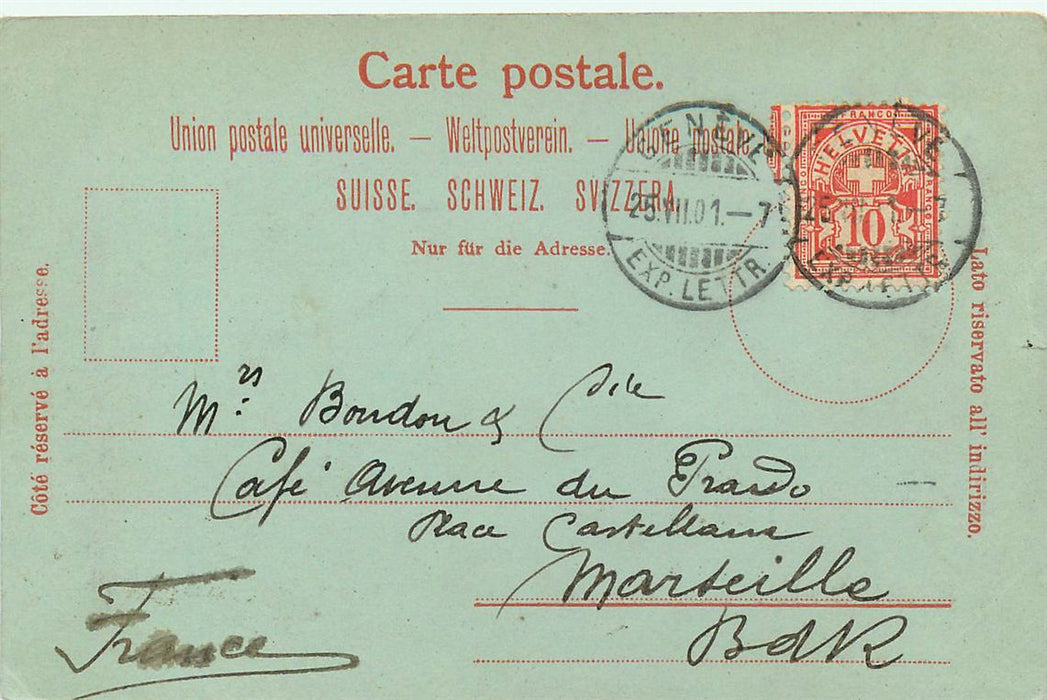 Carte postale.
Union postale universelle. — Weltpostverein. — Unione postale
SUISSE. SCHWEIZ. SVIZZERA.
Nur für die Adresse.
Côté réservé à l'adresse.
Lato riservato all' indirizzo.
GENÈVE
25.VII.01.—7
EXP. LETTR.
FRANCO
HELVETIA
10
Mrs Boudon & Cie
Café Avenue du Prado
Place Castellane
Marseille
BdR
France